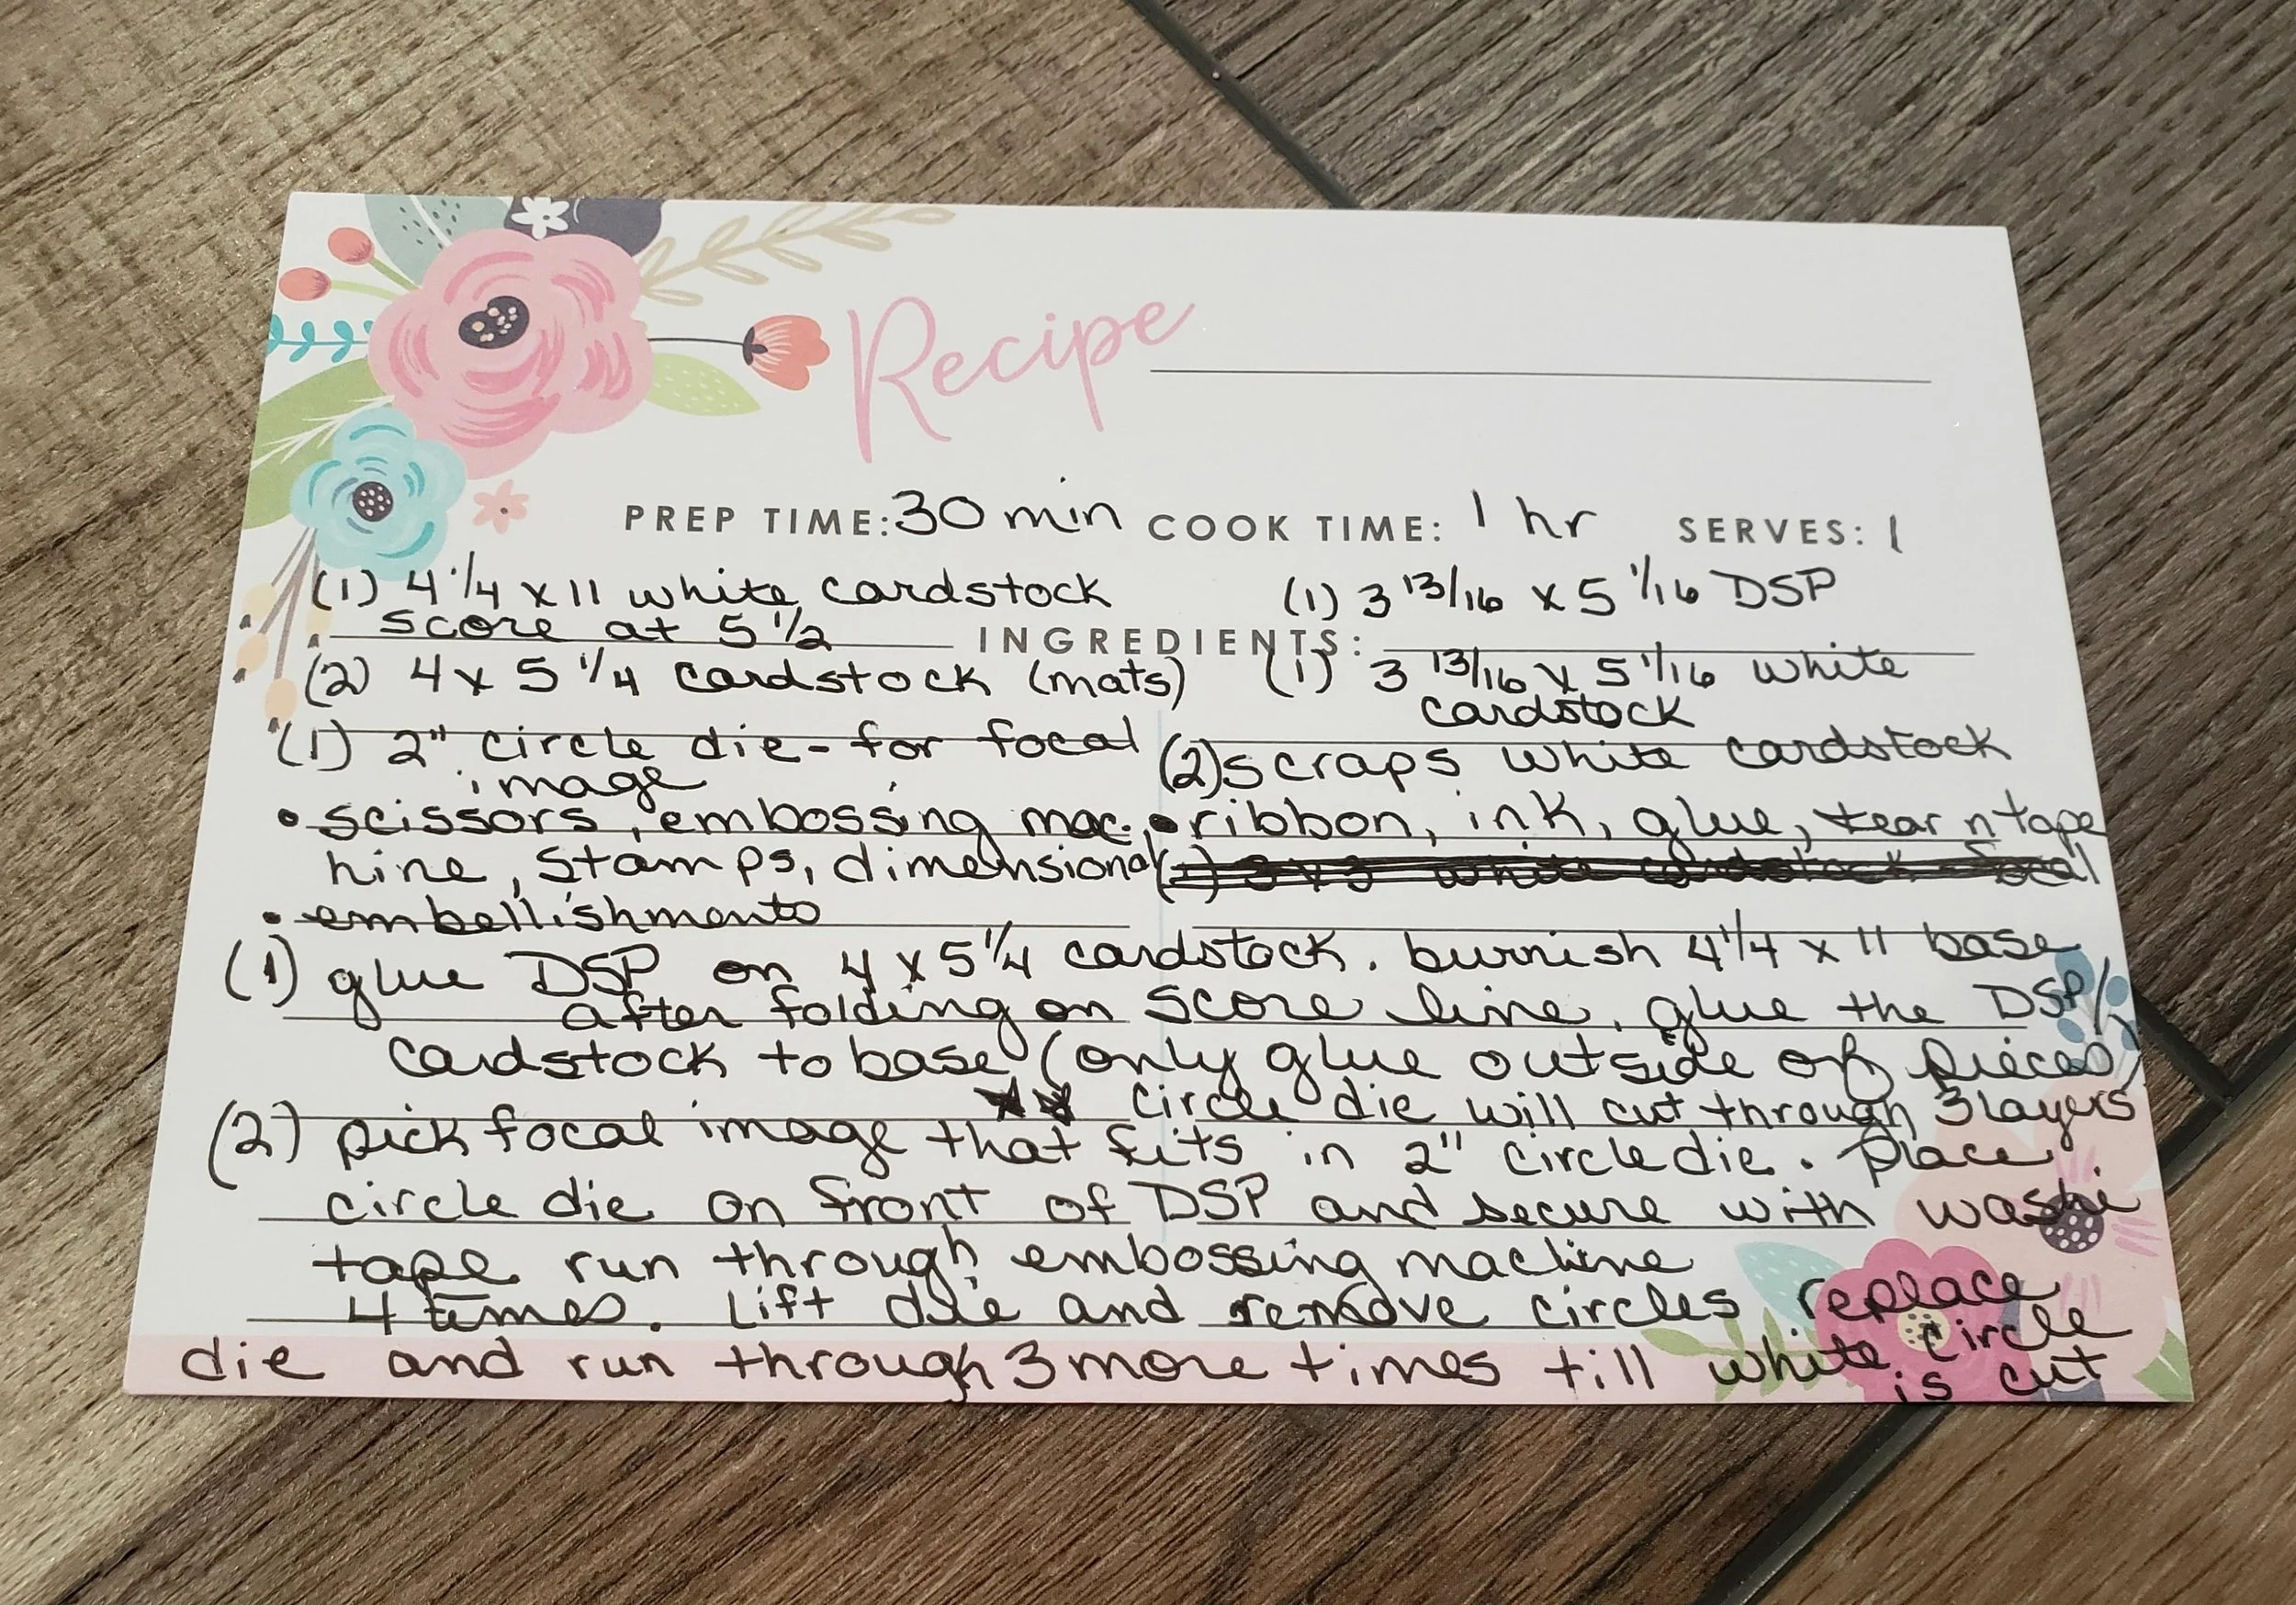 Recipe
PREP TIME: 30 min COOK TIME: 1 hr SERVES: 1
(1) 4 1/4 x 11 white cardstock
score at 5 1/2
(1) 3 13/16 x 5 1/16 DSP
INGREDIENTS:
(2) 4 x 5 1/4 cardstock (mats)
(1) 3 13/16 x 5 1/16 white
cardstock
(1) 2" circle die - for focal
image
(2) scraps white cardstock
• scissors, embossing mac.
hine, stamps, dimensional
• embellishments
• ribbon, ink, glue, tear n tape
(1) 3 x 3 white cardstock - focal
(1) glue DSP on 4 x 5 1/4 cardstock. burnish 4 1/4 x 11 base
after folding on score line, glue the DSP/
cardstock to base (only glue outside of pieces)
** circle die will cut through 3 layers
(2) pick focal image that fits in 2" circle die. Place
circle die on front of DSP and secure with washi
tape run through embossing machine
4 times. Lift die and remove circles replace
die and run through 3 more times till white circle
is cut